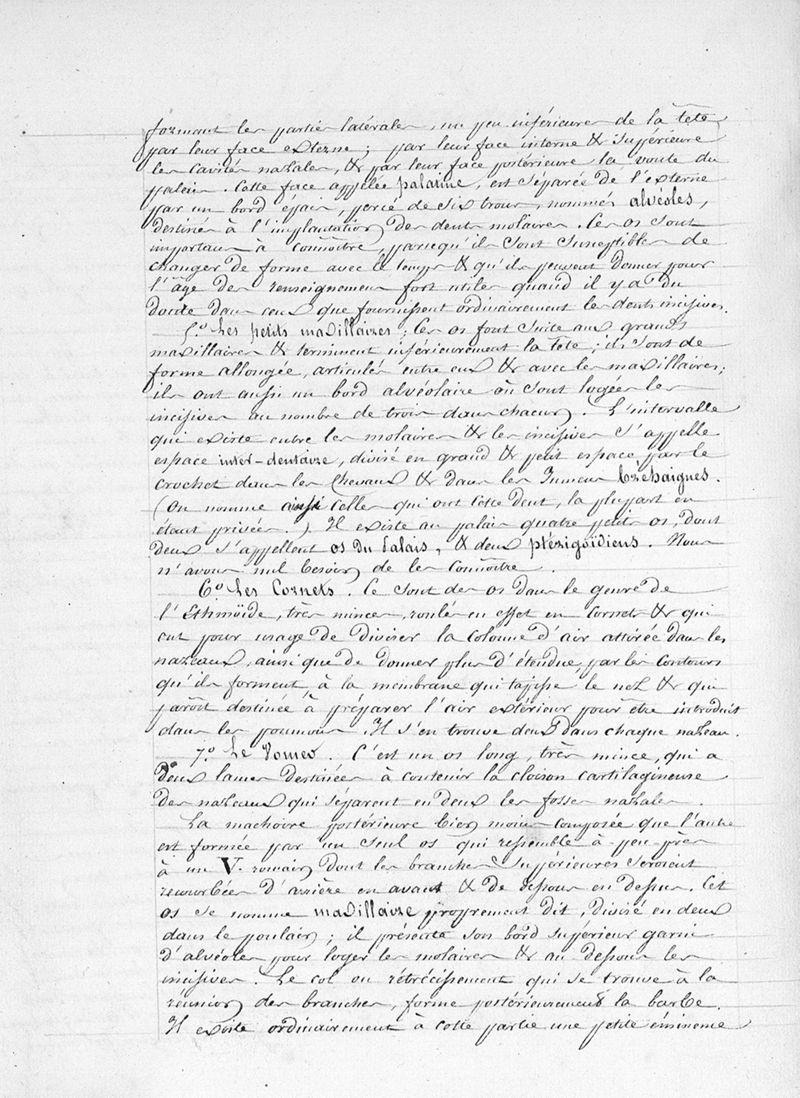 formant les parties latérales, un peu inférieures de la tête
par leur face externe ; par leur face interne & supérieure
les cavités nazales, & par leur face postérieure la voute du
palais. Cette face appelée palatine, est séparée de l'externe
par un bord épais, percé de six trous, nommés alvéoles,
destinés à l'implantation des dents molaires. Ces os sont
importans à connoître, parcequ'ils sont susceptibles de
changer de forme avec le temps & qu'ils peuvent donner pour
l'âge des renseignemens fort utiles quand il y a du
doute dans ceux que fournissent ordinairement les dents incisives.
5.º Les petits maxillaires ; ces os font suite aux grands
maxillaires & terminent inférieurement la tête ; ils sont de
forme allongée, articulés entre eux & avec les maxillaires ;
ils ont aussi un bord alvéolaire où sont logées les
incisives au nombre de trois dans chacun. L'intervalle
qui existe entre les molaires & les incisives s'appelle
espace inter-dentaire, divisé en grand & petit espace par le
crochet dans les chevaux & dans les Jumens brehaignes.
(On nomme ainsi celles qui ont cette dent, la plupart en
étant privées.) Il existe au palais quatre petits os, dont
deux s'appellent os du Palais, & deux ptérigoïdiens. Nous
n'avons nul besoin de les connoître.
6.º Les Cornets. Ce sont des os dans le genre de
l'Ethmoïde, très minces, roulés en effet en cornets & qui
ont pour usage de diviser la colonne d'air attirée dans les
nazeaux, ainsi que de donner plus d'étendue par les contours
qu'ils forment, à la membrane qui tapisse le nez & qui
paroît destinée à préparer l'air extérieur pour etre introduit
dans les poumons. Il s'en trouve deux dans chaque nazeau.
7.º Le Vomer. C'est un os long, très mince, qui a
deux lames destinées à contenir la cloison cartilagineuse
des nazeaux qui séparent en deux les fosses nazales.
La machoire postérieure bien moins composée que l'autre
est formée par un seul os qui ressemble à peu près
à un V. romain dont les branches supérieures seroient
recourbées d'arrière en avant & de dessous en dessus. Cet
os se nomme maxillaire proprement dit, divisé en deux
dans le poulain ; il présente son bord superieur garni
d'alvéoles pour loger les molaires & au dessous les
incisives. Le col ou rétrécissement qui se trouve à la
réunion des branches, forme postérieurement la barbe.
Il existe ordinairement à cette partie une petite éminence